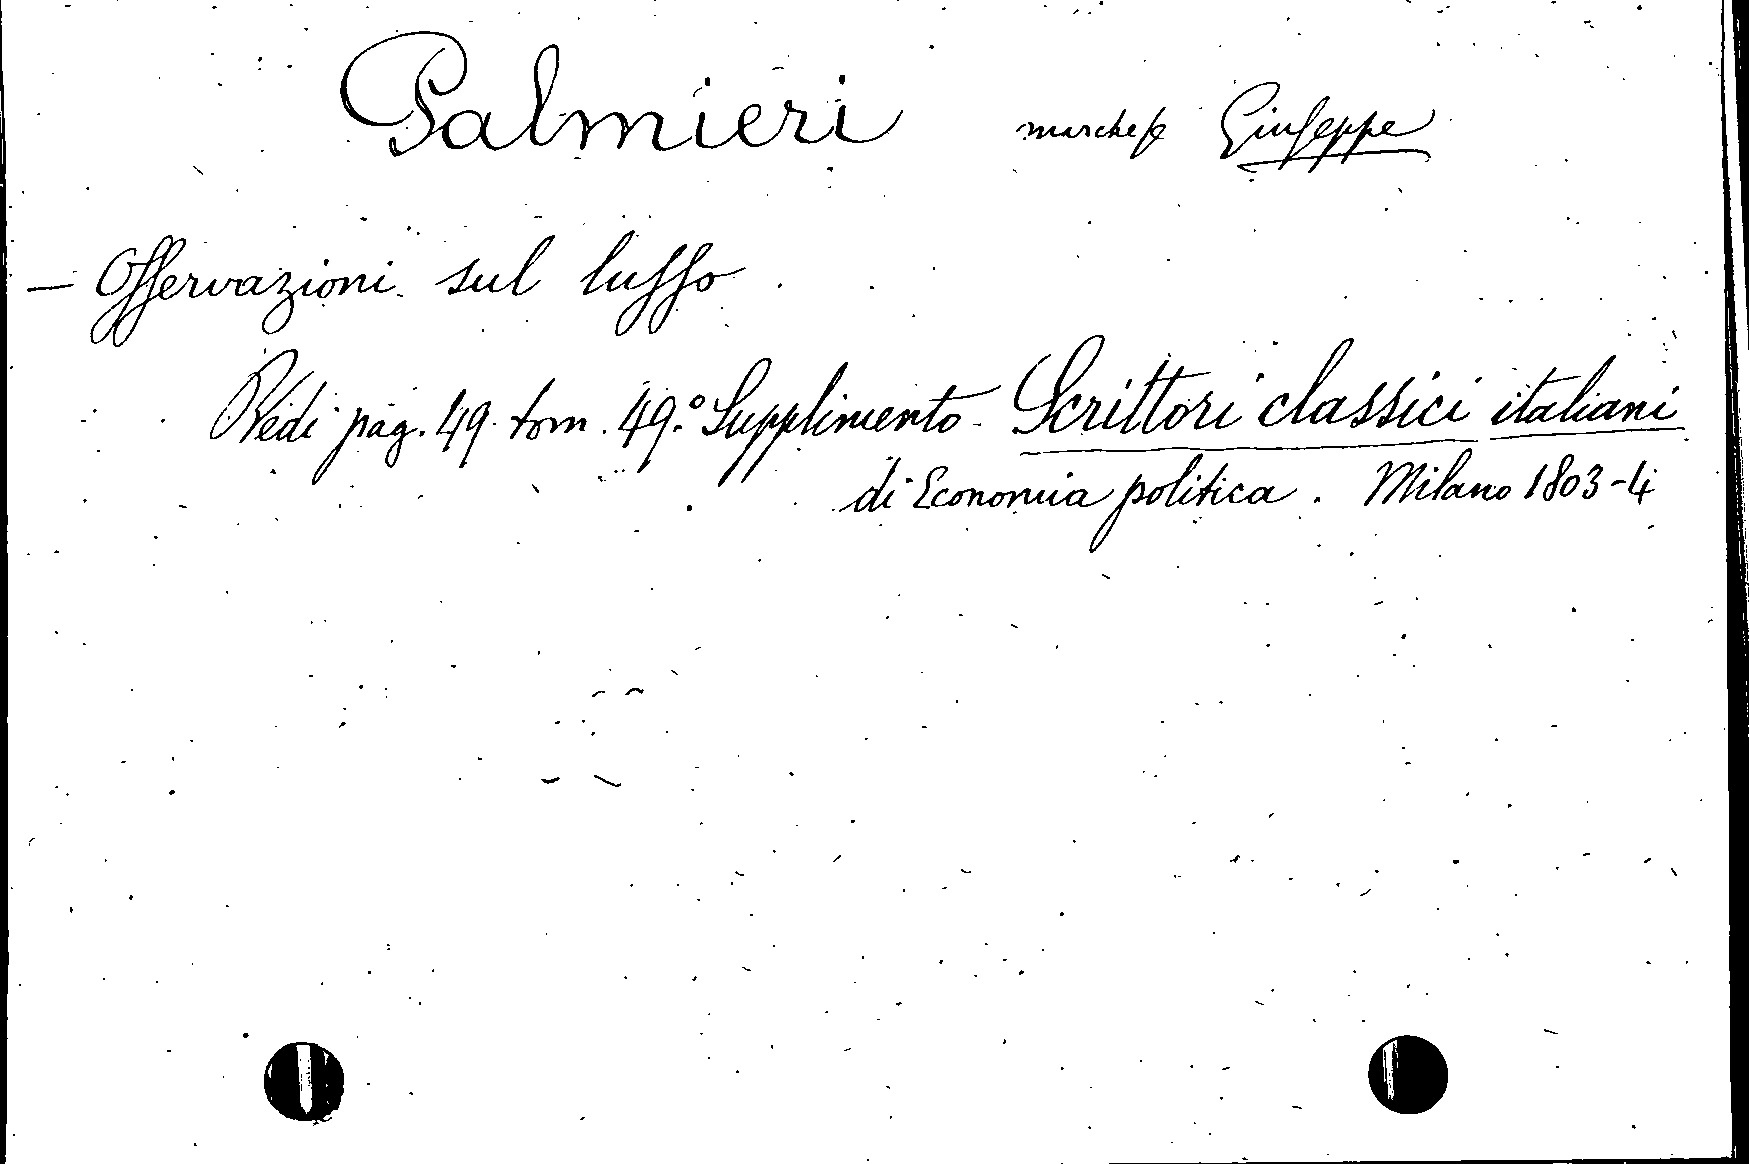 Palmieri marchese Giuseppe
— Osservazioni sul lusso.
Vedi pag. 49. tom. 49.º Supplimento - Scrittori classici italiani
di Economia politica. Milano 1803-4